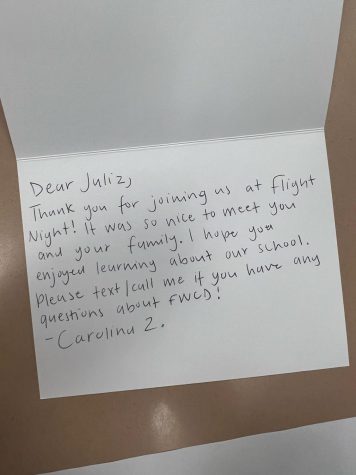 Dear Juliz,
Thank you for joining us at Flight
Night! It was so nice to meet you
and your family. I hope you
enjoyed learning about our school.
Please text/call me if you have any
questions about FWCD!
- Carolina Z.